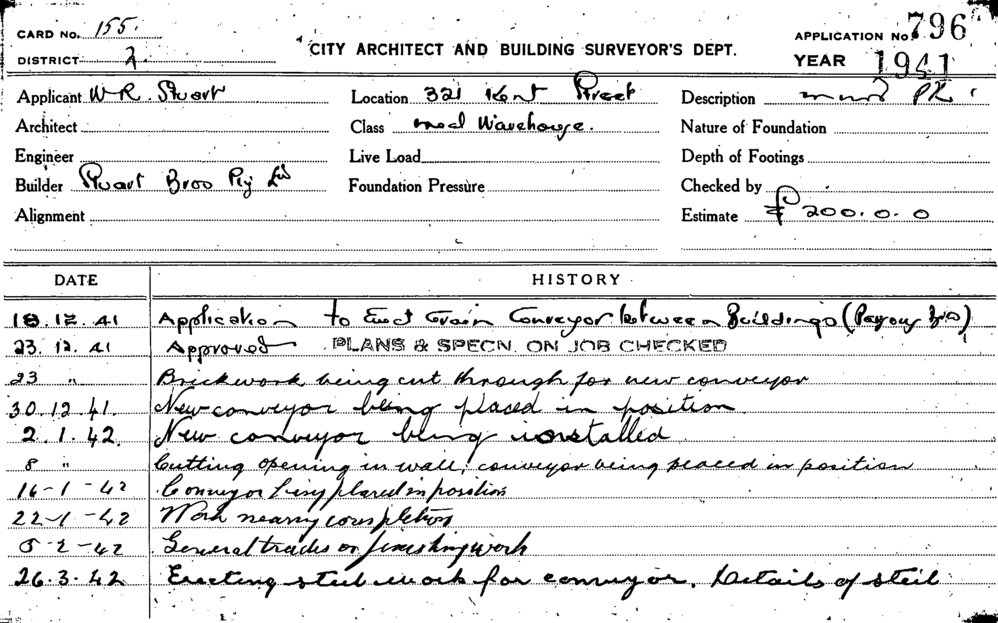 CARD No. 155.
APPLICATION No. 796
DISTRICT 2
CITY ARCHITECT AND BUILDING SURVEYOR'S DEPT.
YEAR 1941
Applicant W R. Stuart Location 321 Kent Street Description
Architect Class Warehouse. Nature of Foundation
Engineer Live Load Depth of Footings
Builder Stuart Bros Pty Ltd Foundation Pressure Checked by
Alignment Estimate £200.0.0
DATE HISTORY
18.12.41 Application to Erect Grain Conveyor between Buildings
23.12.41 Approved PLANS & SPECN. ON JOB CHECKED
23 " Brickwork being cut through for new conveyor
30.12.41. New conveyor being placed in position
2.1.42. New conveyor being installed
8 " Cutting opening in wall, conveyor being placed in position
16-1-42 Conveyor being placed in position
22-1-42 Work nearing completion
5-2-42 General trades on finishing work
26.3.42 Erecting steel work for conveyor. Details of steel